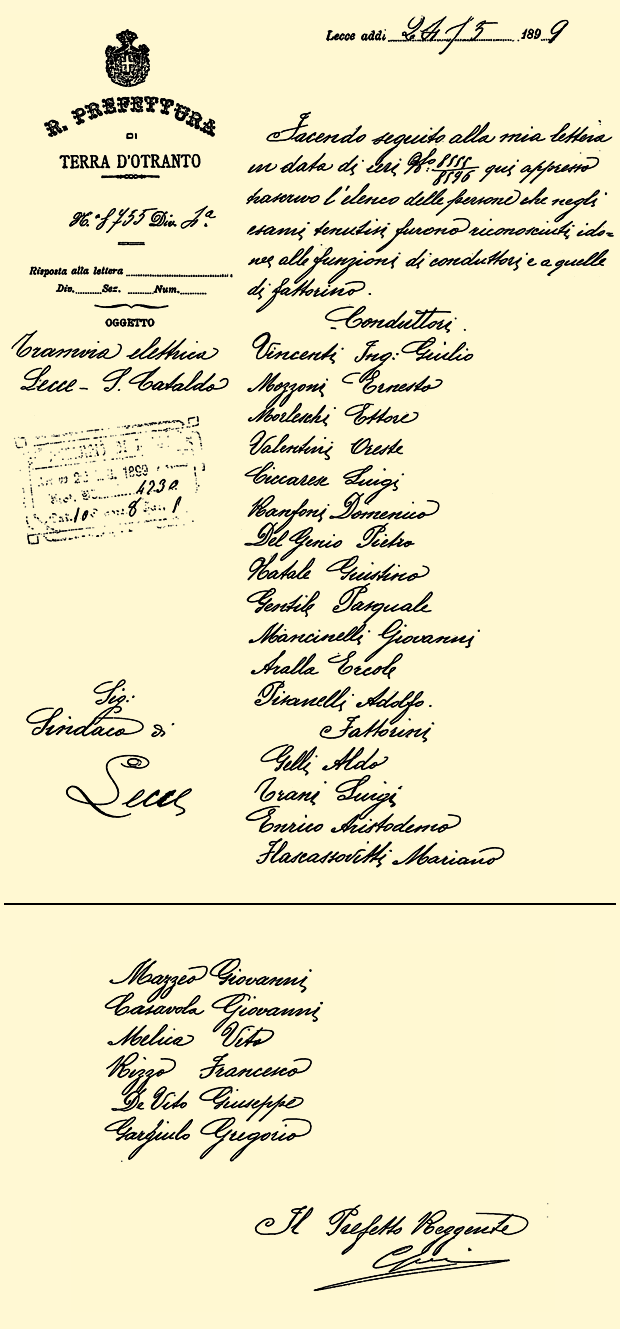 Lecce addì 24/5 1899
R. PREFETTURA
DI
TERRA D'OTRANTO
N.° 8755 Div. 4ª
Risposta alla lettera
Div. Sez. Num.
OGGETTO
Tramvia elettrica
Lecce - S. Cataldo
1899
4230
Sig:
Sindaco di
Lecce
Facendo seguito alla mia lettera
in data di ieri 8555/8596 qui appresso
trascrivo l'elenco delle persone che negli
esami tenutisi furono riconosciuti ido=
nei alle funzioni di conduttori e a quelle
di fattorino.
Conduttori.
Vincenti Ing: Giulio
Mozzoni Ernesto
Morleschi Ettore
Valentini Oreste
Ciccarese Luigi
Ranfoni Domenico
Del Genio Pietro
Natale Giustino
Gentile Pasquale
Mancinelli Giovanni
Aralla Ercole
Pisanelli Adolfo.
Fattorini
Gelli Aldo
Trani Luigi
Enrico Aristodemo
Flascassovitti Mariano
Mazzeo Giovanni
Casavola Giovanni
Melica Vito
Rizzo Francesco
De Vito Giuseppe
Gargiulo Gregorio
Il Prefetto Reggente